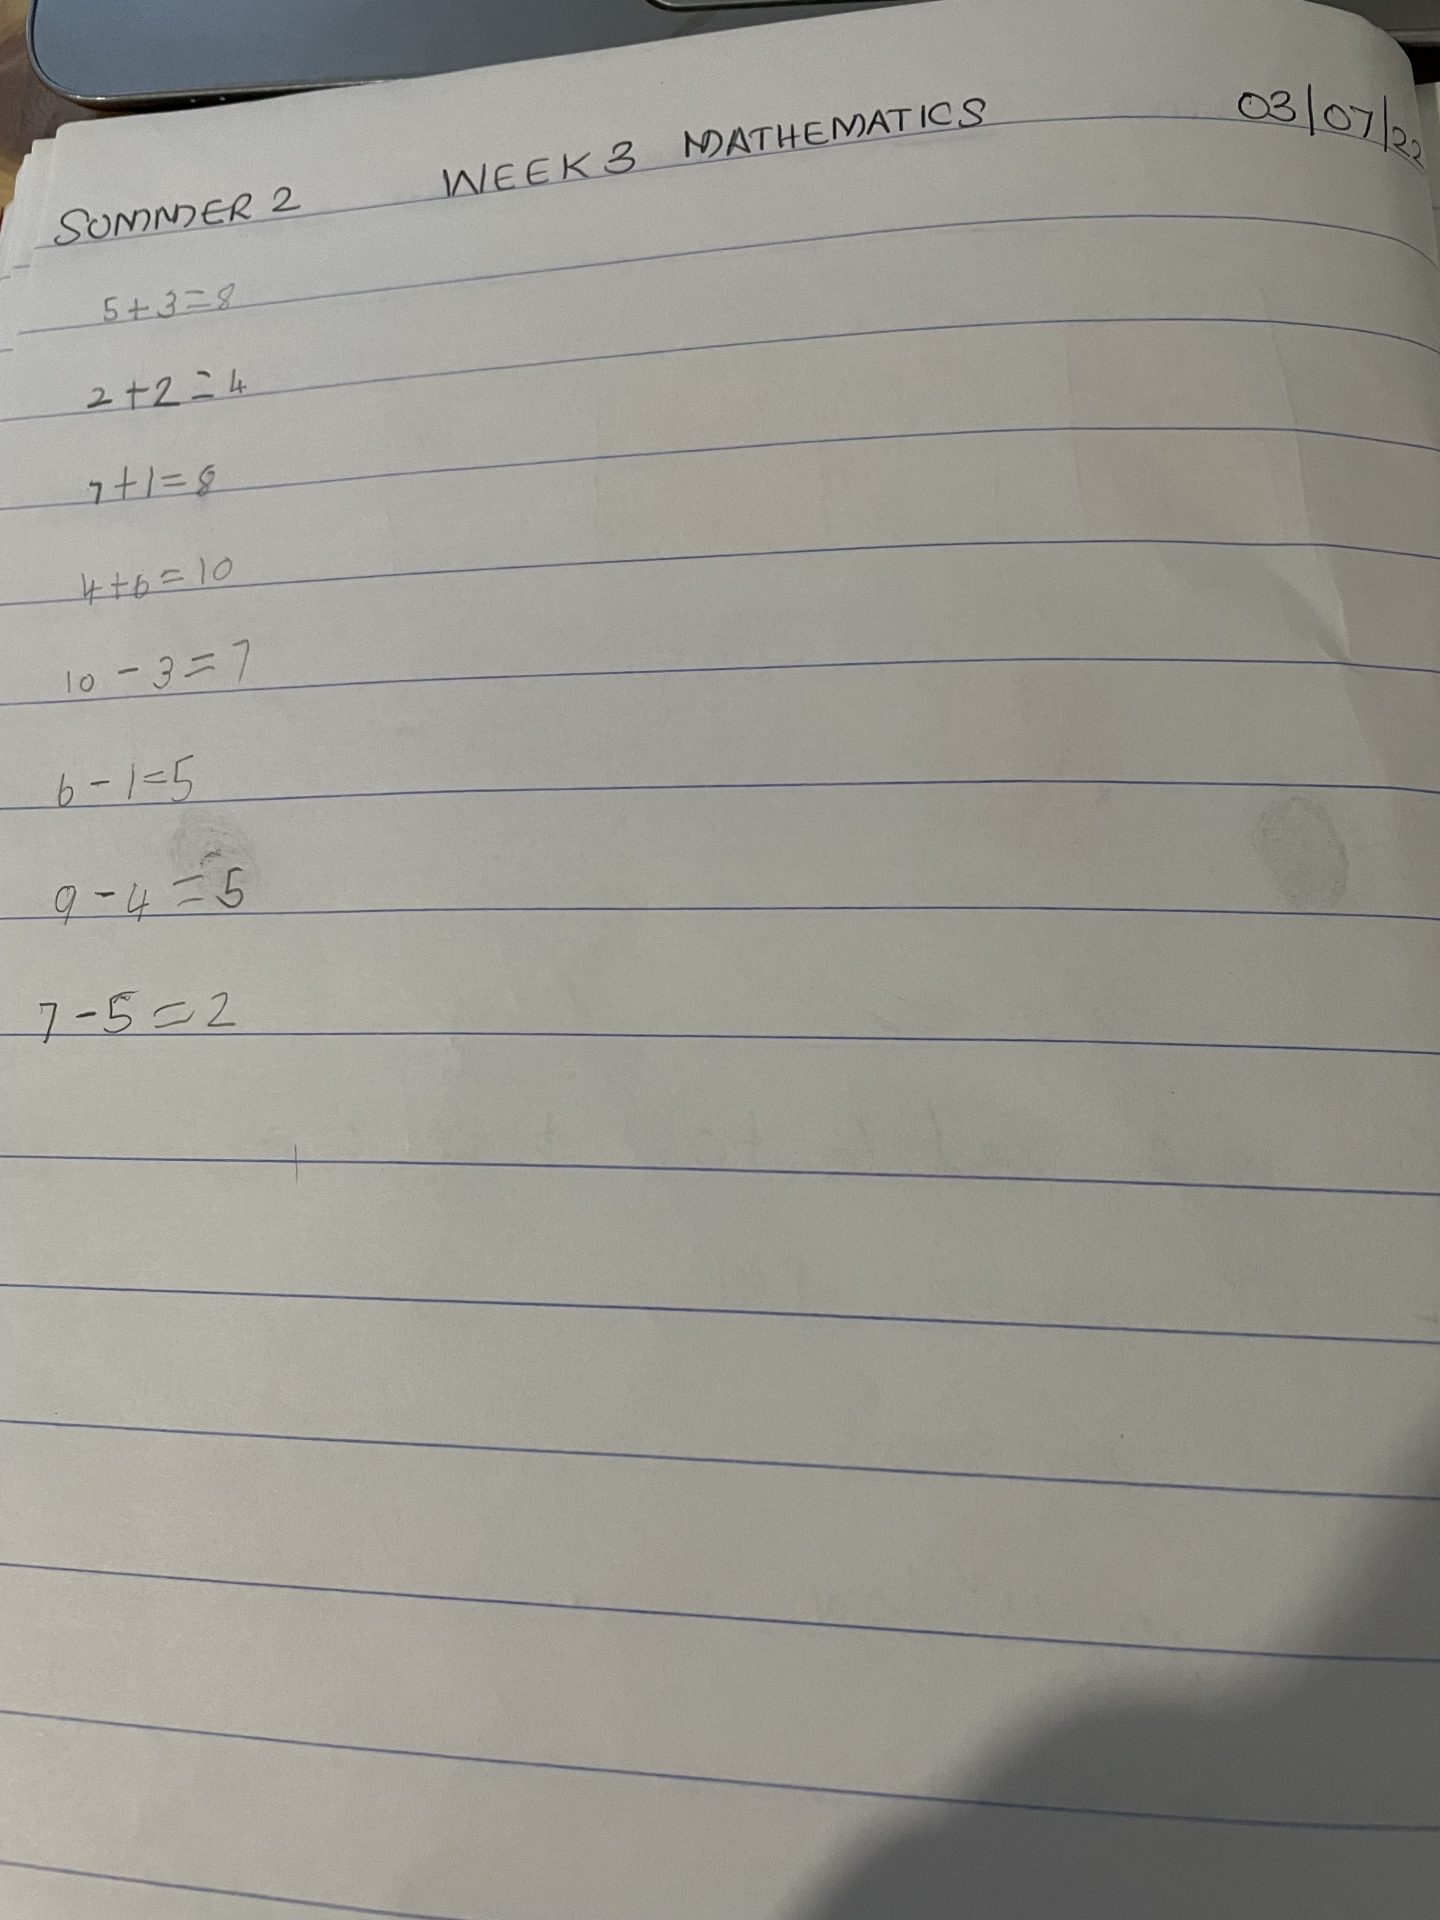 SUMMER 2 WEEK 3 MATHEMATICS 03/07/22
5+3=8
2+2=4
7+1=8
4+6=10
10-3=7
6-1=5
9-4=5
7-5=2